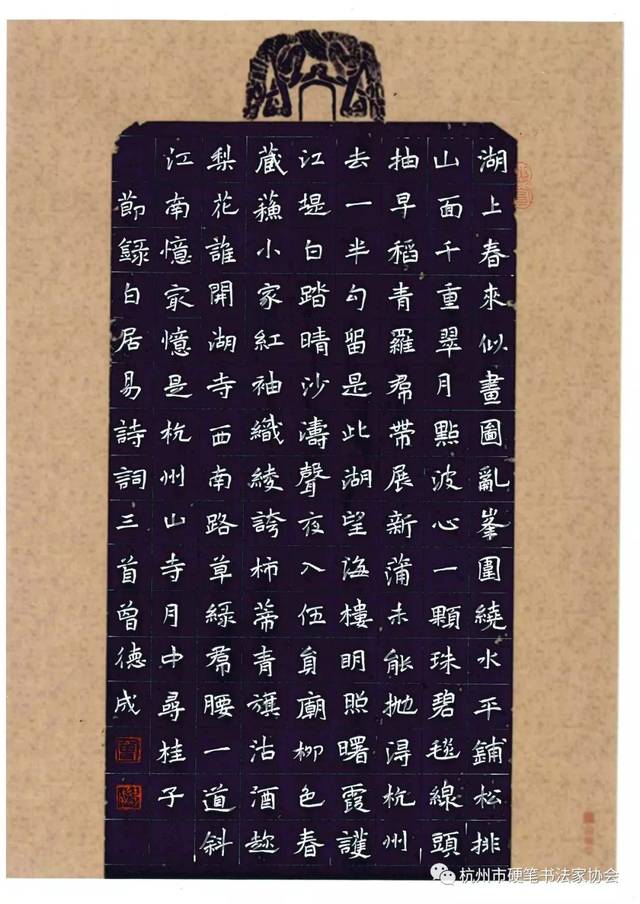 湖上春來似畫圖亂峯圍繞水平鋪松排
山面千重翠月點波心一顆珠碧毯線頭
抽早稻青羅帬帶展新蒲未能抛淂杭州
去一半勾留是此湖望海樓明照曙霞護
江堤白踏晴沙濤聲夜入伍員廟柳色春
藏蘇小家紅袖織綾誇柿蒂青旗沽酒趂
梨花誰開湖寺西南路草綠帬腰一道斜
江南憶㝡憶是杭州山寺月中尋桂子
節錄白居易詩詞三首曾德成
杭州市硬笔书法家协会